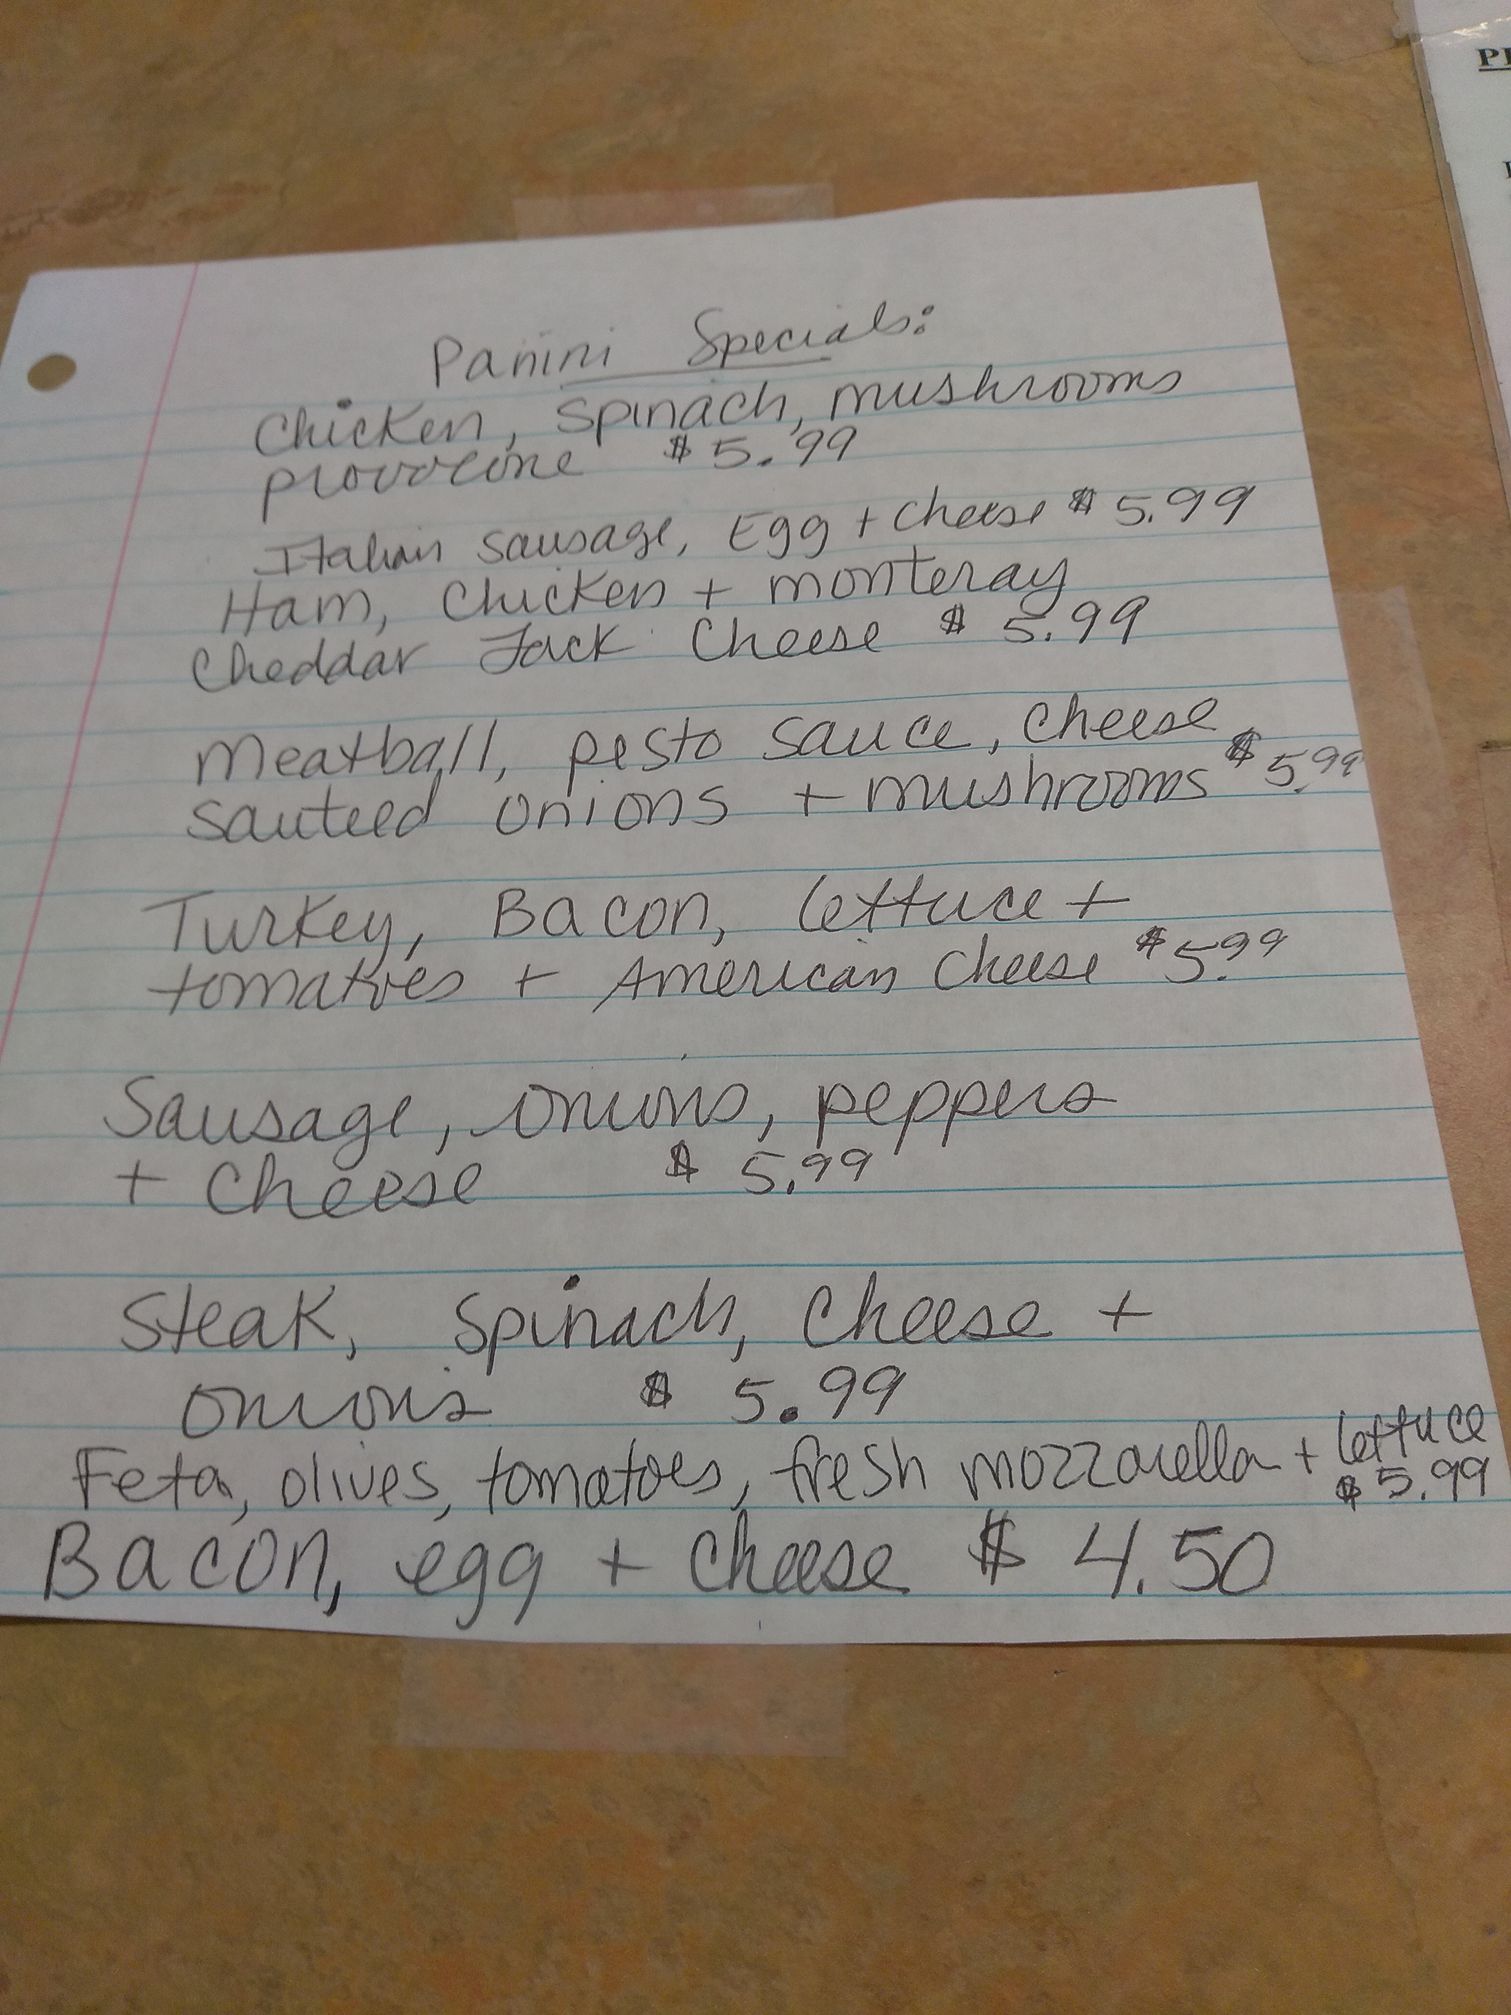 Panini Specials:
Chicken, spinach, mushrooms
provolone $5.99
Italian sausage, Egg + cheese $5.99
Ham, Chicken + monteray
Cheddar Jack Cheese $5.99
Meatball, pesto sauce, cheese
sauteed onions + mushrooms $5.99
Turkey, Bacon, lettuce +
tomatoes + American Cheese $5.99
Sausage, onions, peppers
+ Cheese $5.99
Steak, Spinach, Cheese +
onions $5.99
Feta, olives, tomatoes, fresh mozzarella + lettuce
$5.99
Bacon, egg + cheese $4.50